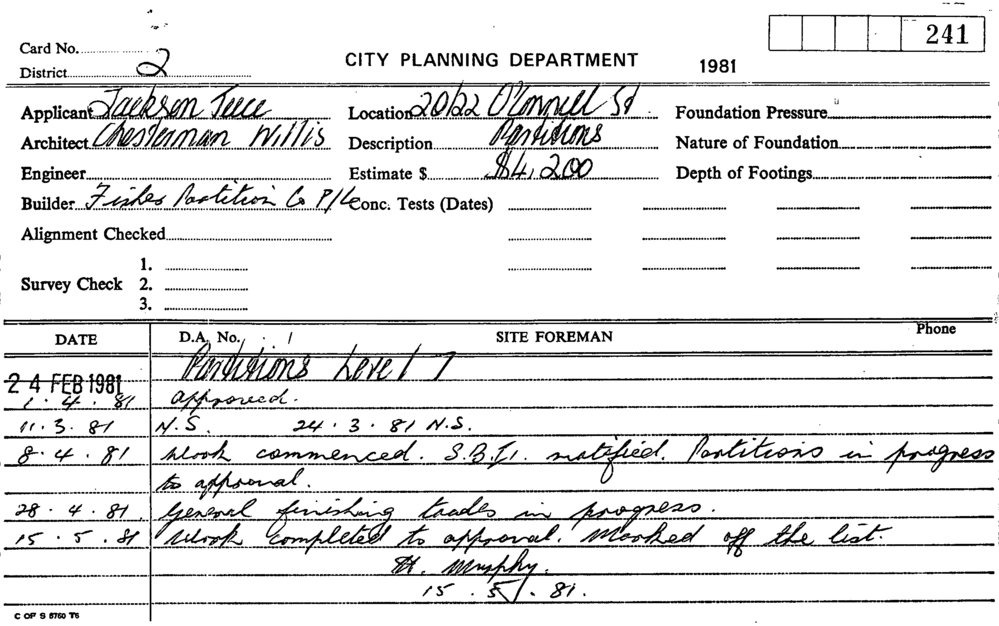 241
Card No.
CITY PLANNING DEPARTMENT 1981
District 2
Applicant Jackson Teece Location 20/22 O'Connell St. Foundation Pressure
Architect Chesterman Willis Description Partitions Nature of Foundation
Engineer Estimate $ $4,200 Depth of Footings
Builder Fisher Partition Co P/L Conc. Tests (Dates)
Alignment Checked
1.
Survey Check 2.
3.
DATE D.A. No. SITE FOREMAN Phone
Partitions Level 7
24 FEB 1981
1.4.81 approved.
11.3.81 N.S. 24.3.81 N.S.
8.4.81 Work commenced. S.B.I. notified. Partitions in progress
to approval.
28.4.81 General finishing trades in progress.
15.5.81 Work completed to approval. Marked off the list.
H. Murphy.
15.5.81.
C OF S 8760 T6